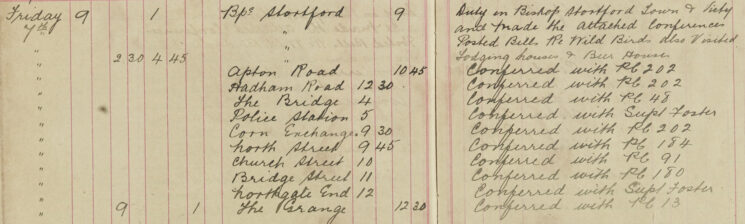 Friday 9 1 Bps Stortford 9 Duty in Bishop Stortford Town & Victy
7th " " and made the attached Conferences
" Posted Bills Re Wild Birds also Visited
" 2 30 4 45 " Lodging houses & Beer House
" Apton Road 10 45 Conferred with PC 202
" Hadham Road 12 30 Conferred with PC 202
" The Bridge 4 Conferred with PC 48
" Police Station 5 Conferred with Supt Foster
" Corn Exchange 9 30 Conferred with PC 202
" North Street 9 45 Conferred with PC 184
" Church Street 10 Conferred with PC 91
" Bridge Street 11 Conferred with PC 180
" Northgate End 12 Conferred with Supt Foster
" 9 1 The Grange 12 30 Conferred with PC 13